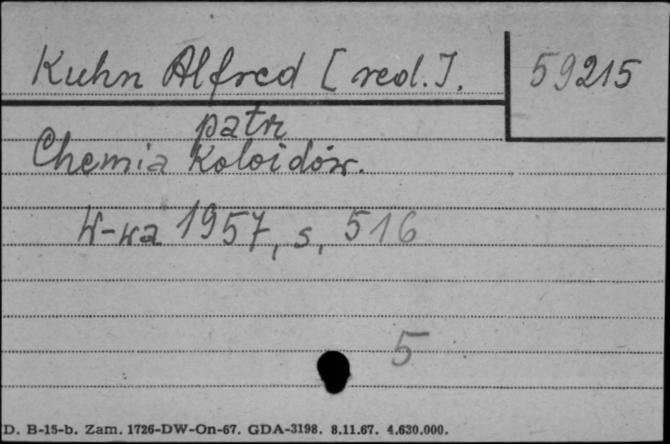 Kuhn Alfred [red.].
59215
patr
Chemia Koloidów.
W-wa 1957, s. 516
5
D. B-15-b. Zam. 1726-DW-On-67. GDA-3198. 8.11.67. 4.630.000.